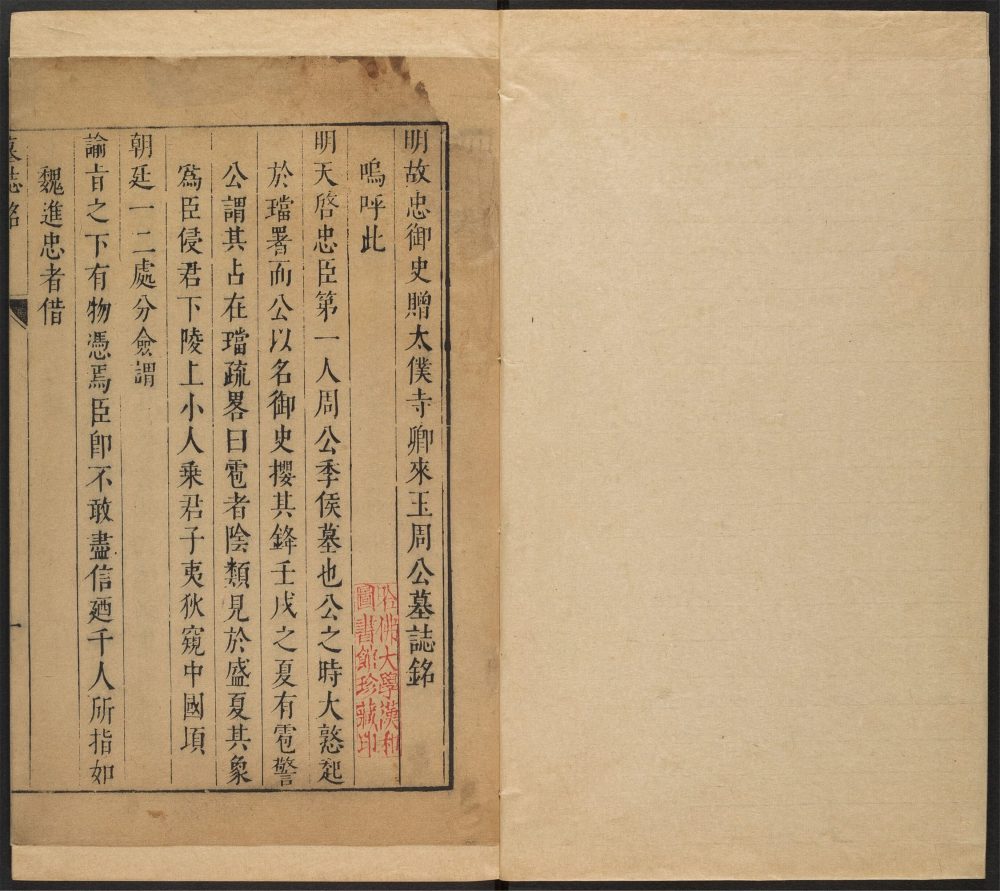 明故忠御史贈太僕寺卿來玉周公墓誌銘
嗚呼此
明天啓忠臣第一人周公季侯墓也公之時大憝起
於璫署而公以名御史攖其鋒壬戌之夏有雹警
公謂其占在璫疏畧曰雹者陰類見於盛夏其象
爲臣侵君下陵上小人乘君子夷狄窺中國項
朝廷一二處分僉謂
諭旨之下有物憑焉臣卽不敢盡信廼千人所指如
魏進忠者借
墓誌銘
一
哈佛大學漢和
圖書館珍藏印